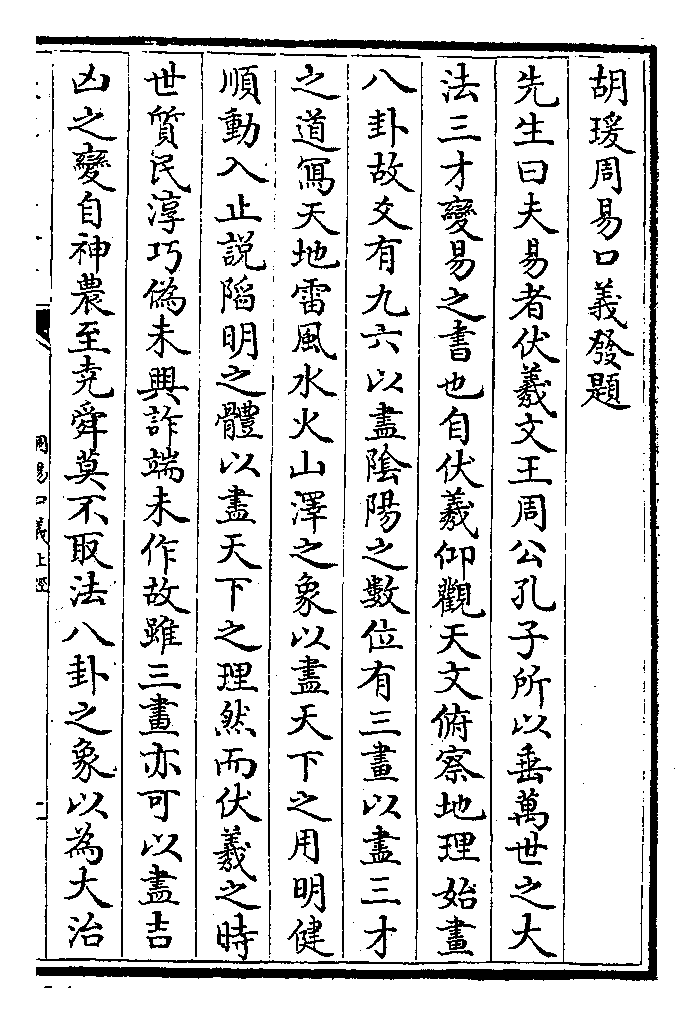 胡瑗周易口義發題
先生曰夫易者伏羲文王周公孔子所以垂萬世之大
法三才變易之書也自伏羲仰觀天文俯察地理始畫
八卦故爻有九六以盡陰陽之數位有三畫以盡三才
之道寫天地雷風水火山澤之象以盡天下之用明健
順動入止說陷明之體以盡天下之理然而伏羲之時
世質民淳巧偽未興詐端未作故雖三畫亦可以盡吉
凶之變自神農至堯舜莫不取法八卦之象以為大治
周易口義上經